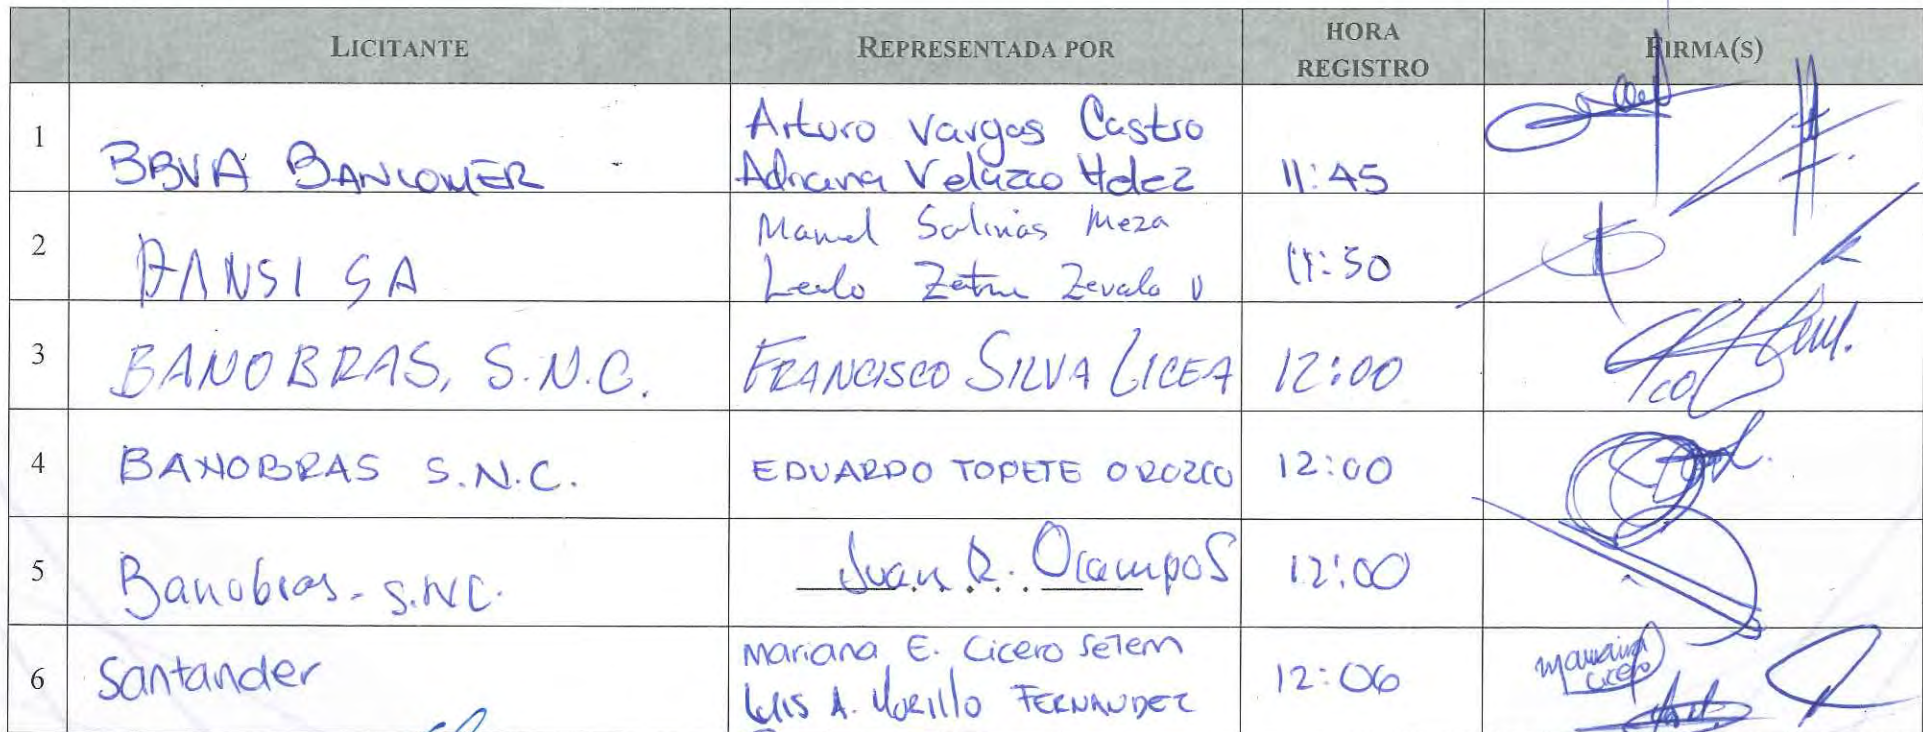 LICITANTE REPRESENTADA POR HORA REGISTRO FIRMA(S)
1 BBVA BANCOMER Arturo Vargas Castro
Adriana Velazco Hdez 11:45
2 BANSI SA Manuel Salinas Meza
Zevala 11:50
3 BANOBRAS, S.N.C. FRANCISCO SILVA LICEA 12:00
4 BANOBRAS S.N.C. EDUARDO TOPETE OROZCO 12:00
5 Banobras. S.N.C. Juan R. Ocampo S 12:00
6 Santander Mariana E. Cicero Selem
LUIS A. MURILLO FERNANDEZ 12:06 mariana cicero